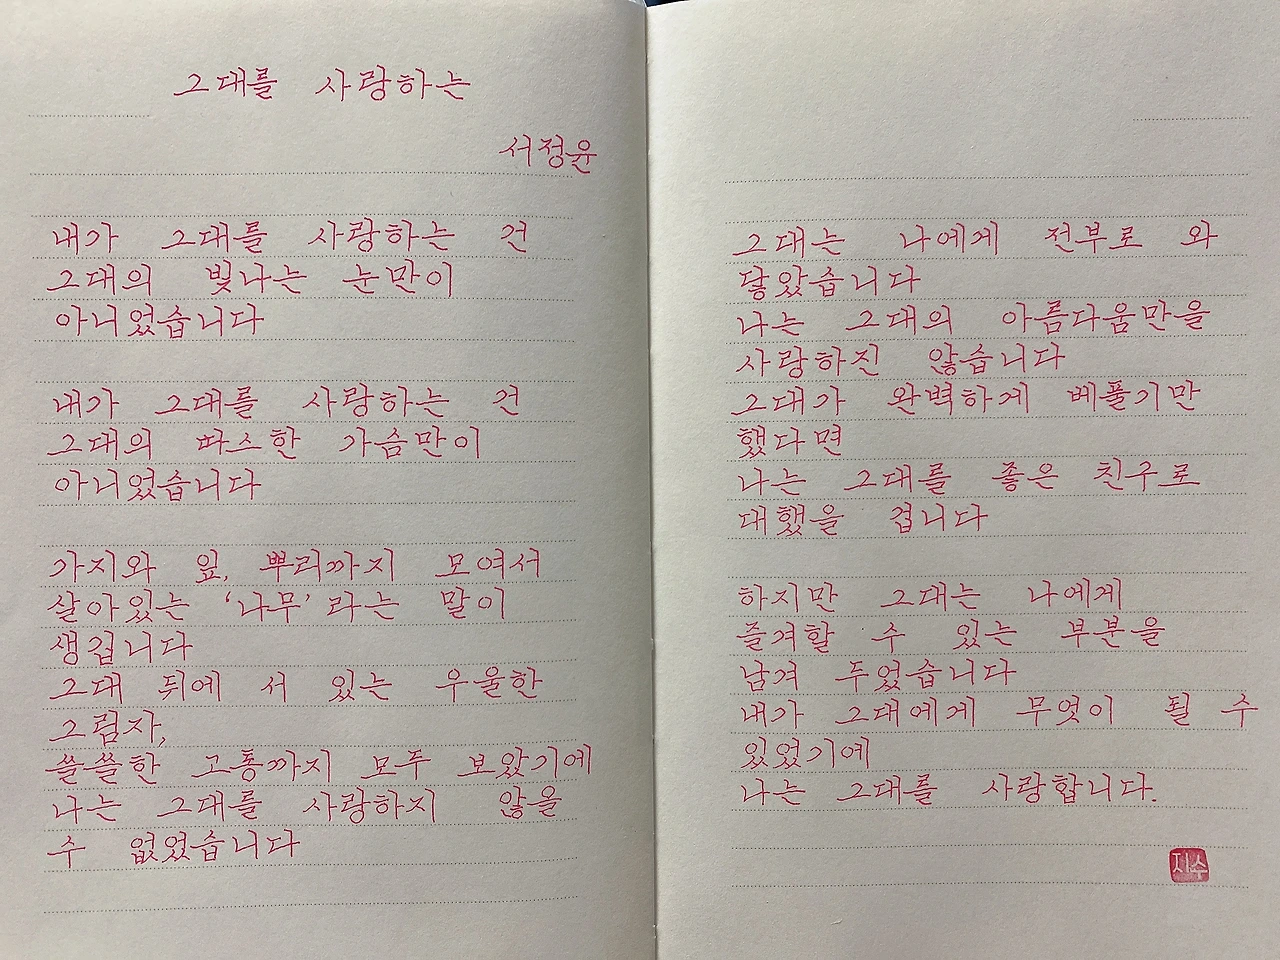 그대를 사랑하는
서정윤
내가 그대를 사랑하는 건
그대의 빛나는 눈만이
아니었습니다
내가 그대를 사랑하는 건
그대의 따스한 가슴만이
아니었습니다
가지와 잎, 뿌리까지 모여서
살아있는 '나무' 라는 말이
생겁니다
그대 뒤에 서 있는 우울한
그림자,
쓸쓸한 고통까지 모두 보았기에
나는 그대를 사랑하지 않을
수 없었습니다
그대는 나에게 전부로 와
닿았습니다
나는 그대의 아름다움만을
사랑하진 않습니다
그대가 완벽하게 베풀기만
했다면
나는 그대를 좋은 친구로
대했을 겁니다
하지만 그대는 나에게
즐겨할 수 있는 부분을
남겨 두었습니다
내가 그대에게 무엇이 될 수
있었기에
나는 그대를 사랑합니다.
지수